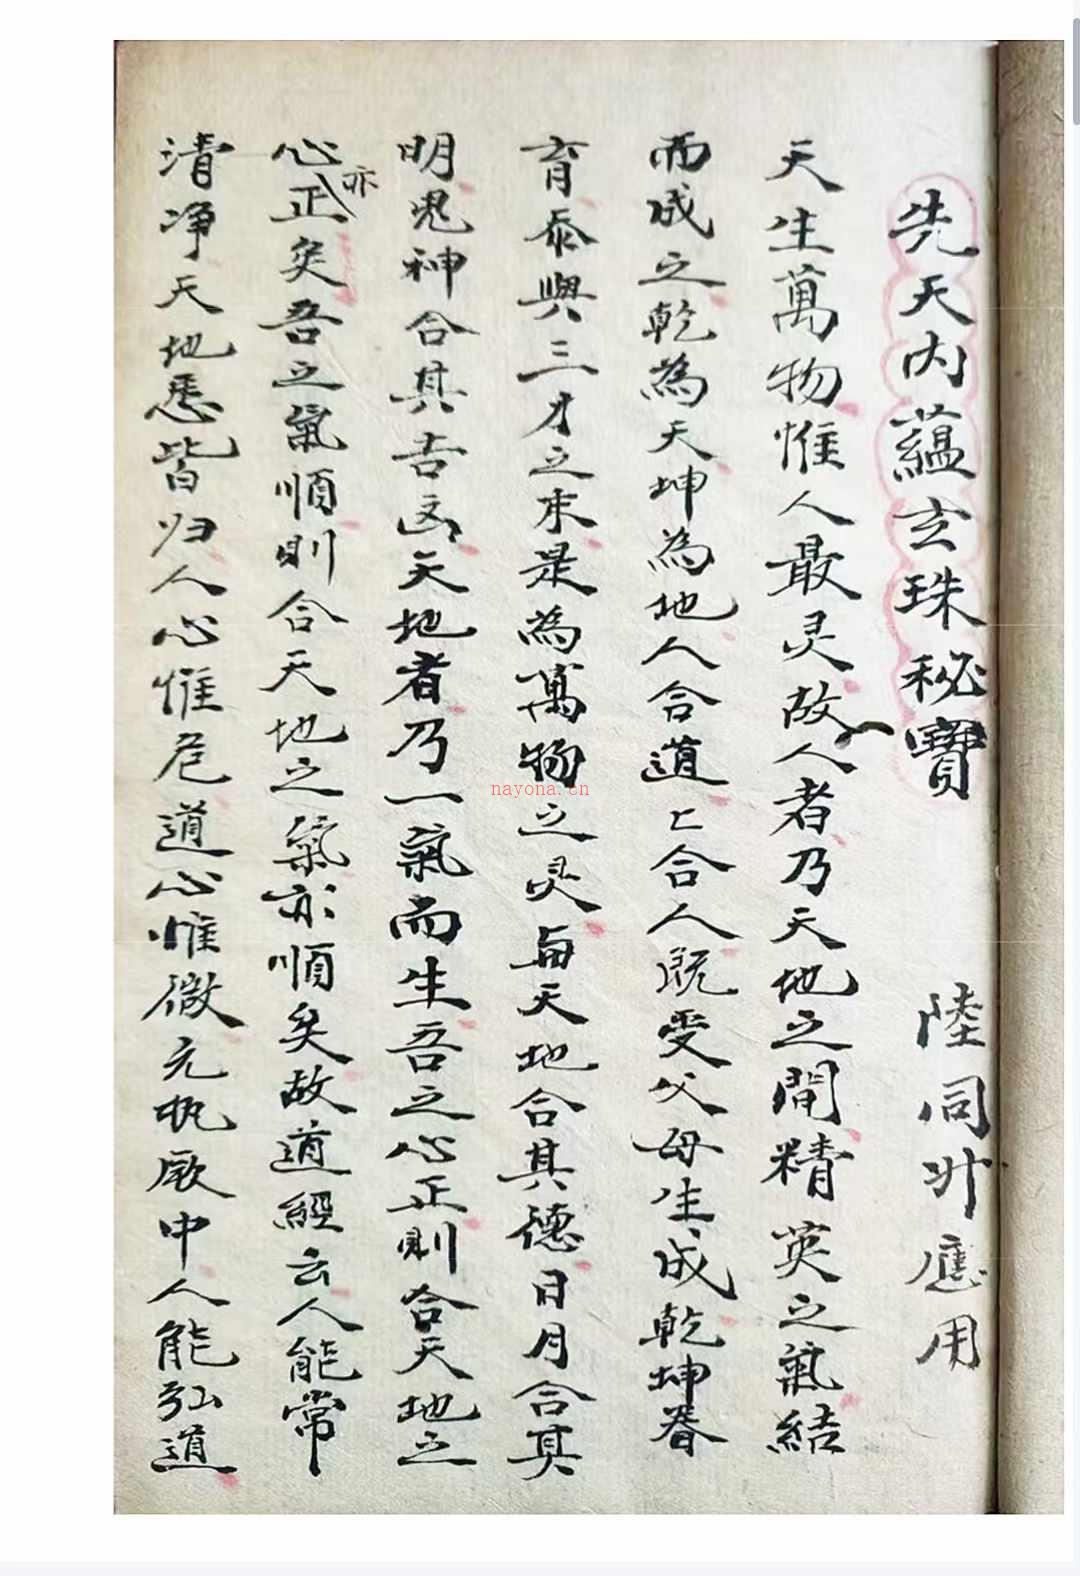 先天内蘊玄珠秘寶 陸同廾應用
天生萬物惟人最灵故人者乃天地之間精英之氣結
而成之乾為天坤為地人合道上合人既受父母生成乾坤眷
育泰與三才之末是為萬物之灵每天地合其德日月合其
明鬼神合其吉凶天地者乃一氣而生吾之心正則合天地之
心亦正矣吾之氣順則合天地之氣亦順矣故道經云人能常
清净天地悉皆归人心惟危道心惟微允执厥中人能弘道
nayona.cn